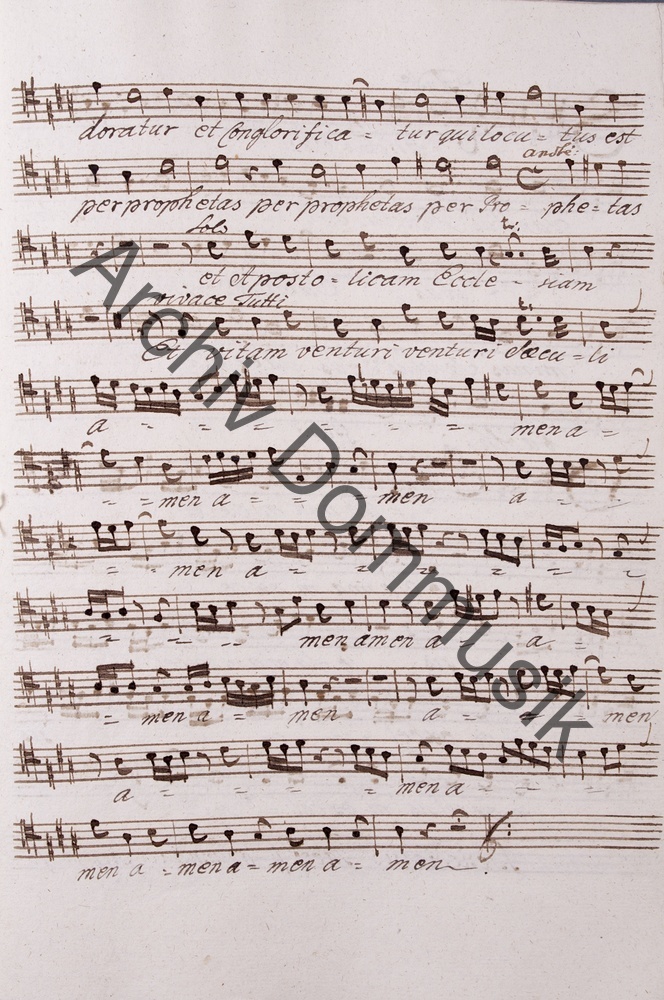 doratur et Conglorifica = tur qui locu = tus est
andte:
per prophetas per prophetas per Pro = phe = tas
Solo
tr:
et Aposto = licam Eccle - siam
vivace Tutti
t:
Et vitam venturi venturi Saecu = li
a = = = = = = men a =
= = men a = = = men a = -
= - men a = = = = = =
= = = men amen a = a =
= men a = men a = = = men
a = = = = men a = - -
men a = men a = men a = men
Archiv Dommusik